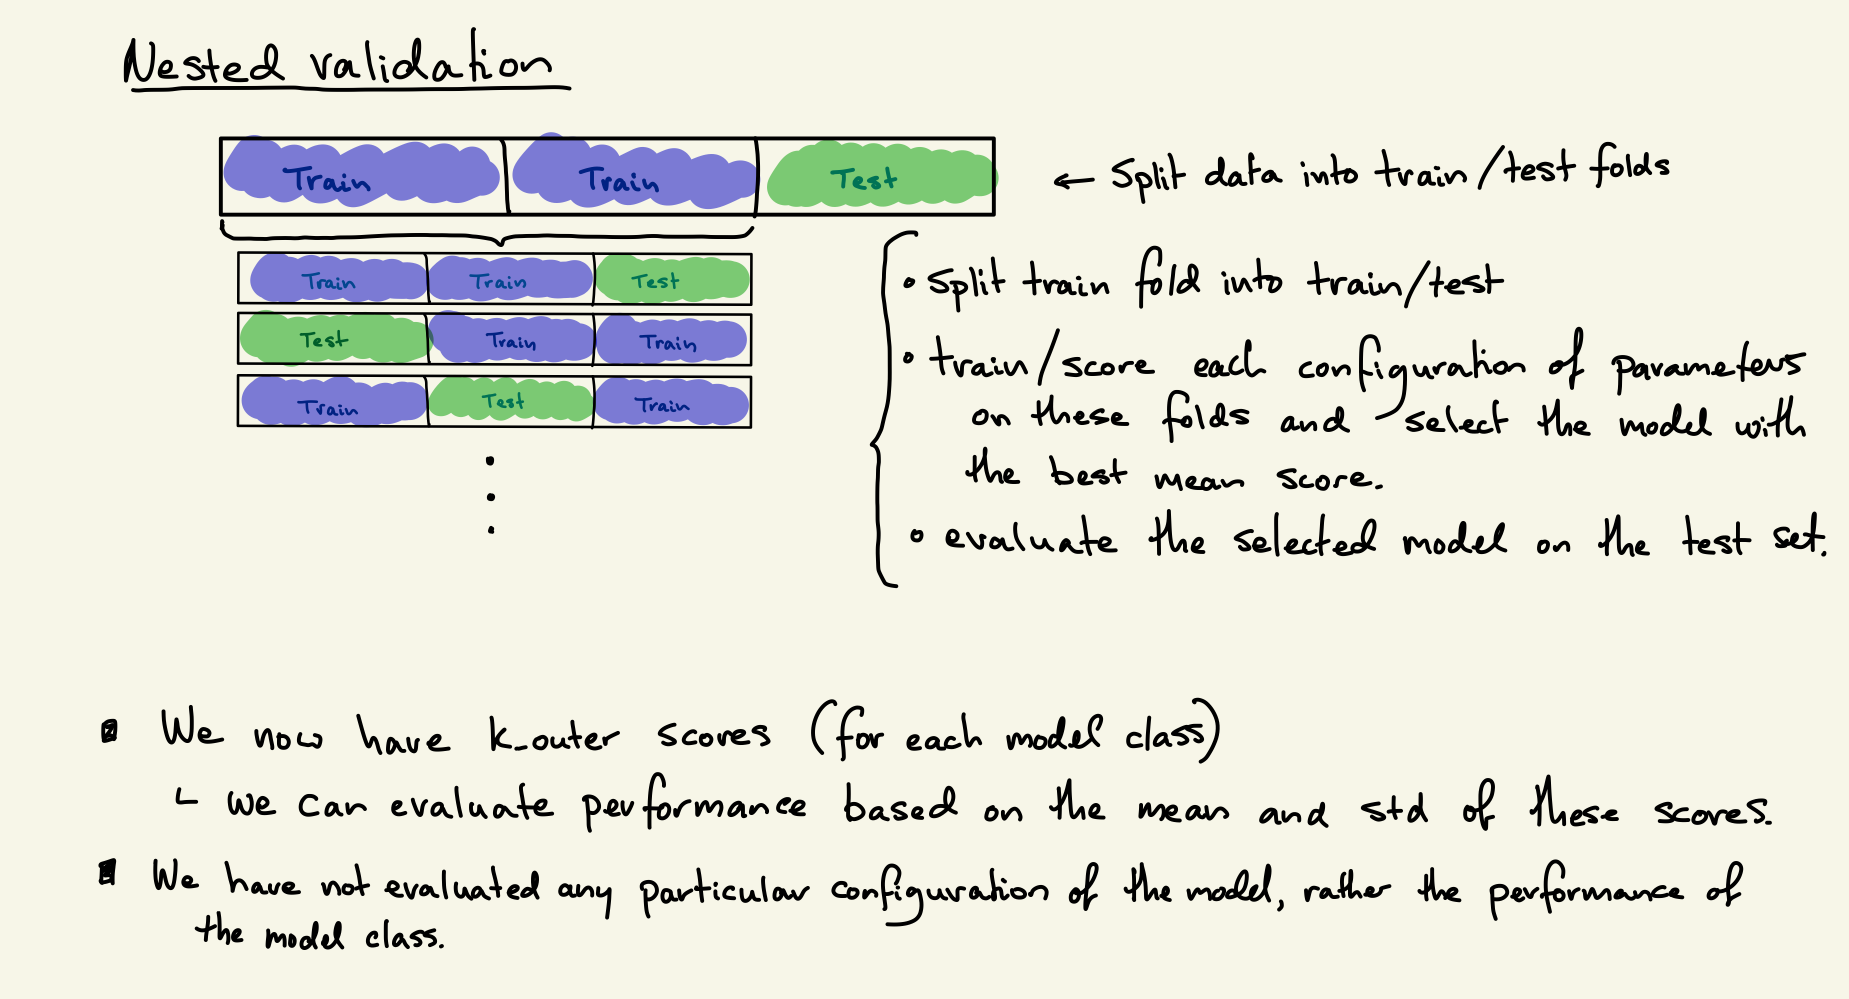 Nested validation
Train Train Test ← Split data into train/test folds
Train Train Test
Test Train Train
Train Test Train
• Split train fold into train/test
• train/score each configuration of parameters
on these folds and select the model with
the best mean score.
• evaluate the selected model on the test set.
▪ We now have k_outer scores (for each model class)
└ we can evaluate performance based on the mean and std of these scores.
▪ We have not evaluated any particular configuration of the model, rather the performance of
the model class.